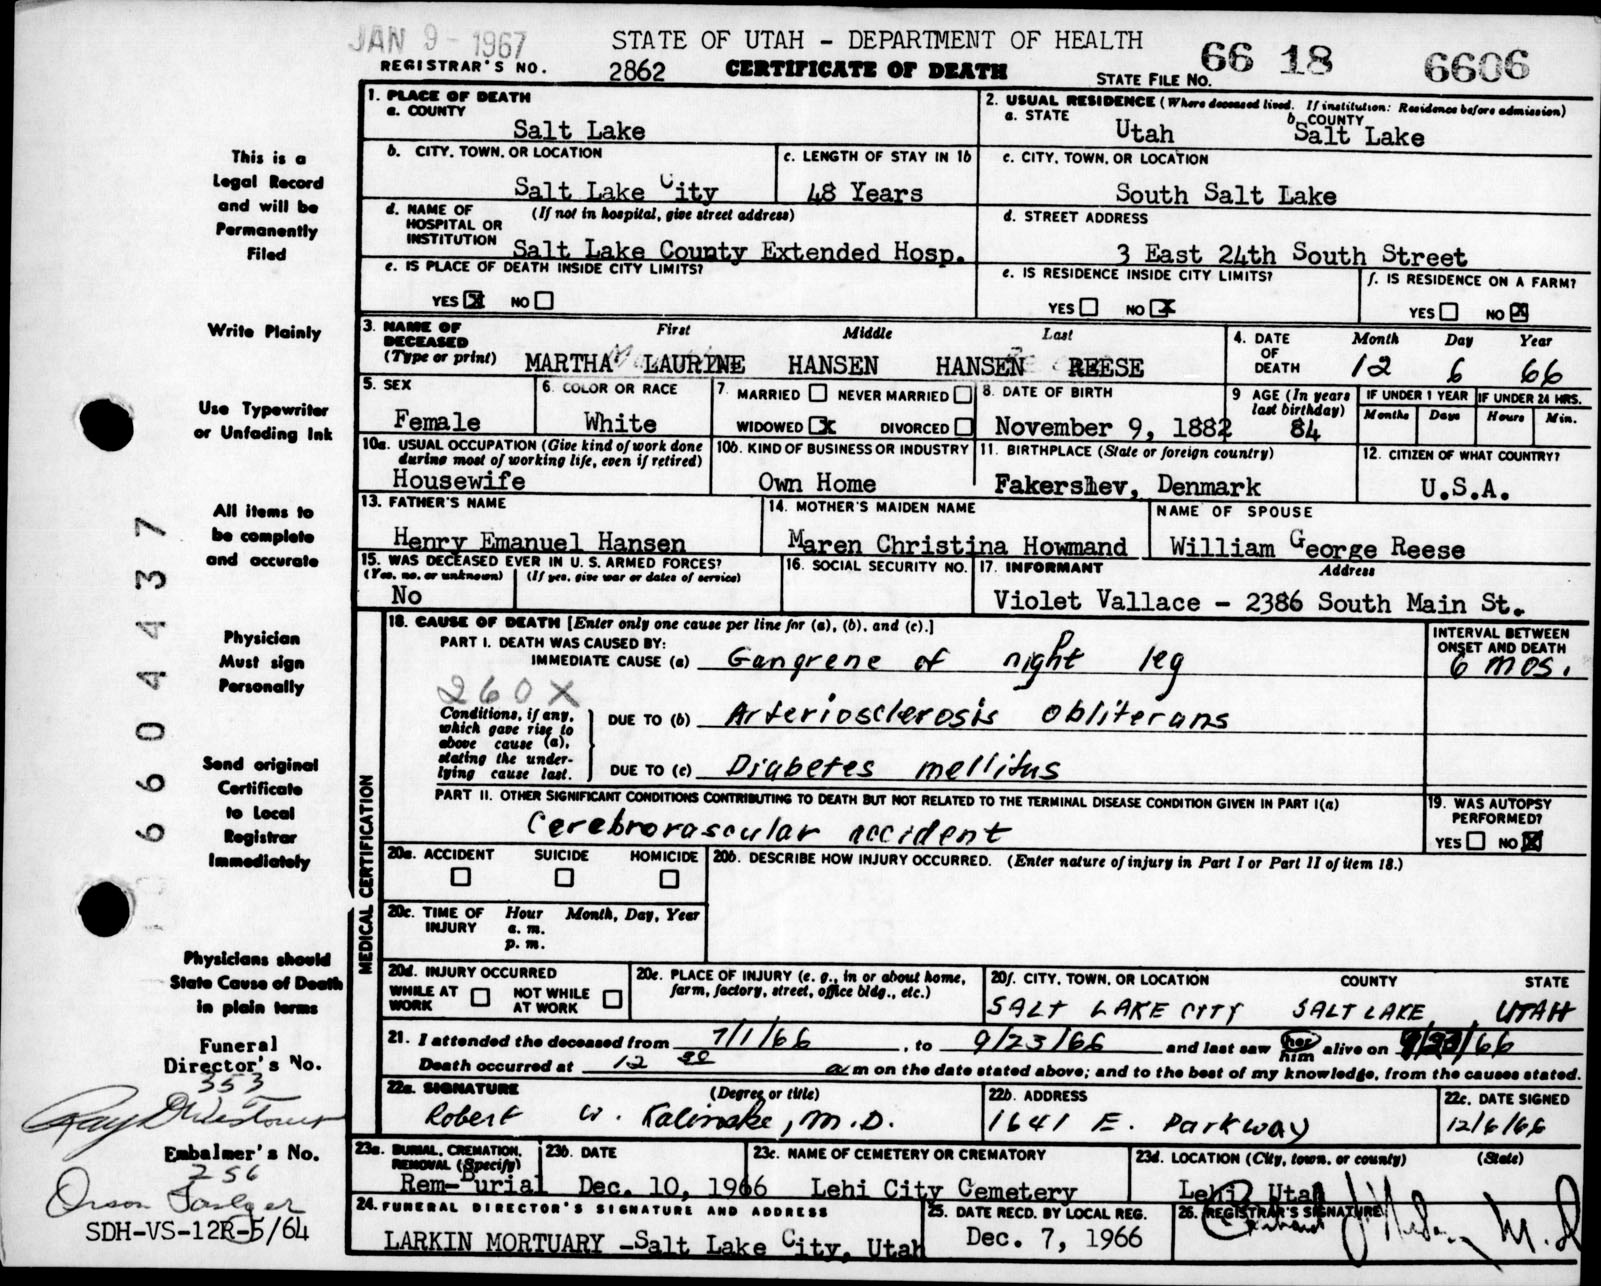 JAN 9 - 1967
STATE OF UTAH - DEPARTMENT OF HEALTH
REGISTRAR'S NO. 2862 CERTIFICATE OF DEATH STATE FILE NO. 66 18 6606
1. PLACE OF DEATH
a. COUNTY
Salt Lake
2. USUAL RESIDENCE (Where deceased lived. If institution: Residence before admission)
a. STATE Utah b. COUNTY Salt Lake
b. CITY, TOWN, OR LOCATION
Salt Lake City
c. LENGTH OF STAY IN 1b
48 Years
c. CITY, TOWN, OR LOCATION
South Salt Lake
d. NAME OF HOSPITAL OR INSTITUTION (If not in hospital, give street address)
Salt Lake County Extended Hosp.
d. STREET ADDRESS
3 East 24th South Street
e. IS PLACE OF DEATH INSIDE CITY LIMITS?
YES X NO
e. IS RESIDENCE INSIDE CITY LIMITS?
YES NO X
f. IS RESIDENCE ON A FARM?
YES NO X
3. NAME OF DECEASED (Type or print) First Middle Last
MARTHA LAURINE HANSEN HANSEN REESE
4. DATE OF DEATH Month Day Year
12 6 66
5. SEX
Female
6. COLOR OR RACE
White
7. MARRIED NEVER MARRIED
WIDOWED X DIVORCED
8. DATE OF BIRTH
November 9, 1882
9 AGE (In years last birthday)
84
IF UNDER 1 YEAR IF UNDER 24 HRS.
Months Days Hours Min.
10a. USUAL OCCUPATION (Give kind of work done during most of working life, even if retired)
Housewife
10b. KIND OF BUSINESS OR INDUSTRY
Own Home
11. BIRTHPLACE (State or foreign country)
Fakershev, Denmark
12. CITIZEN OF WHAT COUNTRY?
U.S.A.
13. FATHER'S NAME
Henry Emanuel Hansen
14. MOTHER'S MAIDEN NAME
Maren Christina Howmand
NAME OF SPOUSE
William George Reese
15. WAS DECEASED EVER IN U. S. ARMED FORCES?
(Yes, no, or unknown) (If yes, give war or dates of service)
No
16. SOCIAL SECURITY NO.
17. INFORMANT Address
Violet Vallace - 2386 South Main St.
MEDICAL CERTIFICATION
18. CAUSE OF DEATH [Enter only one cause per line for (a), (b), and (c).]
PART I. DEATH WAS CAUSED BY:
IMMEDIATE CAUSE (a) Gangrene of right leg
INTERVAL BETWEEN ONSET AND DEATH
6 mos.
260X
Conditions, if any, which gave rise to above cause (a), stating the underlying cause last.
DUE TO (b) Arteriosclerosis obliterans
DUE TO (c) Diabetes mellitus
PART II. OTHER SIGNIFICANT CONDITIONS CONTRIBUTING TO DEATH BUT NOT RELATED TO THE TERMINAL DISEASE CONDITION GIVEN IN PART I(a)
Cerebrovascular accident
19. WAS AUTOPSY PERFORMED?
YES NO X
20a. ACCIDENT SUICIDE HOMICIDE
20b. DESCRIBE HOW INJURY OCCURRED. (Enter nature of injury in Part I or Part II of item 18.)
20c. TIME OF INJURY Hour Month, Day, Year
a. m.
p. m.
20d. INJURY OCCURRED
WHILE AT WORK NOT WHILE AT WORK
20e. PLACE OF INJURY (e. g., in or about home, farm, factory, street, office bldg., etc.)
20f. CITY, TOWN, OR LOCATION COUNTY STATE
SALT LAKE CITY SALT LAKE UTAH
21. I attended the deceased from 7/1/66, to 9/23/66 and last saw her him alive on 9/23/66
Death occurred at 12 am on the date stated above; and to the best of my knowledge, from the causes stated.
22a. SIGNATURE (Degree or title)
Robert W. Kalinske, M.D.
22b. ADDRESS
1641 E. Parkway
22c. DATE SIGNED
12/6/66
23a. BURIAL, CREMATION, REMOVAL (Specify)
Rem-Burial
23b. DATE
Dec. 10, 1966
23c. NAME OF CEMETERY OR CREMATORY
Lehi City Cemetery
23d. LOCATION (City, town, or county) (State)
Lehi, Utah
24. FUNERAL DIRECTOR'S SIGNATURE AND ADDRESS
LARKIN MORTUARY -Salt Lake City, Utah
25. DATE RECD. BY LOCAL REG.
Dec. 7, 1966
26. REGISTRAR'S SIGNATURE
This is a
Legal Record
and will be
Permanently
Filed
Write Plainly
Use Typewriter
or Unfading Ink
All items to
be complete
and accurate
Physician
Must sign
Personally
Send original
Certificate
to Local
Registrar
Immediately
Physicians should
State Cause of Death
in plain terms
Funeral
Director's No.
353
Embalmer's No.
256
SDH-VS-12R-5/64
660437